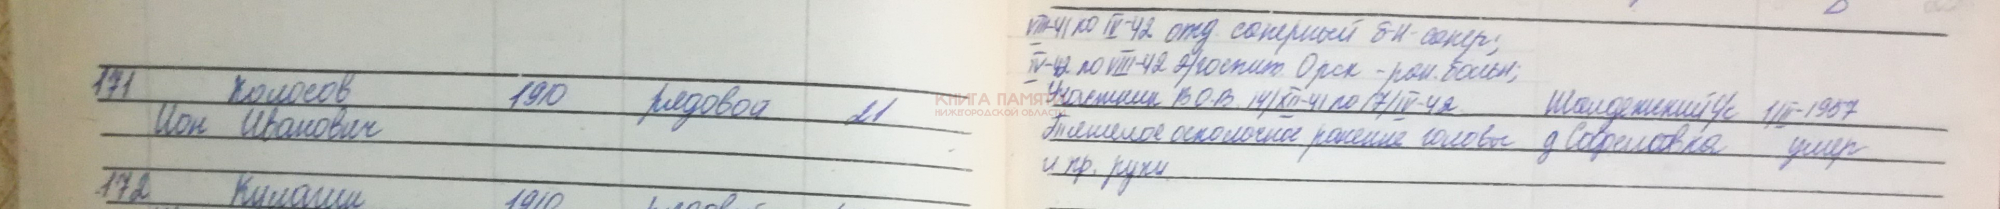 VIII-41 по IV-42 отд. саперный б-н - сапер;
IV-42 по VIII-42 э/госпит. Орск - ран. больн;
171 Колосов 1910 рядовой 21 Участник В.О.В. 14/XII-41 по 17/IV-42 1/III-1957
Ион Иванович Тяжелое осколочное ранение головы д. умер
и пр. руки
172 1910 рядовой
КНИГА ПАМЯТИ
НИЖЕГОРОДСКОЙ ОБЛАСТИ